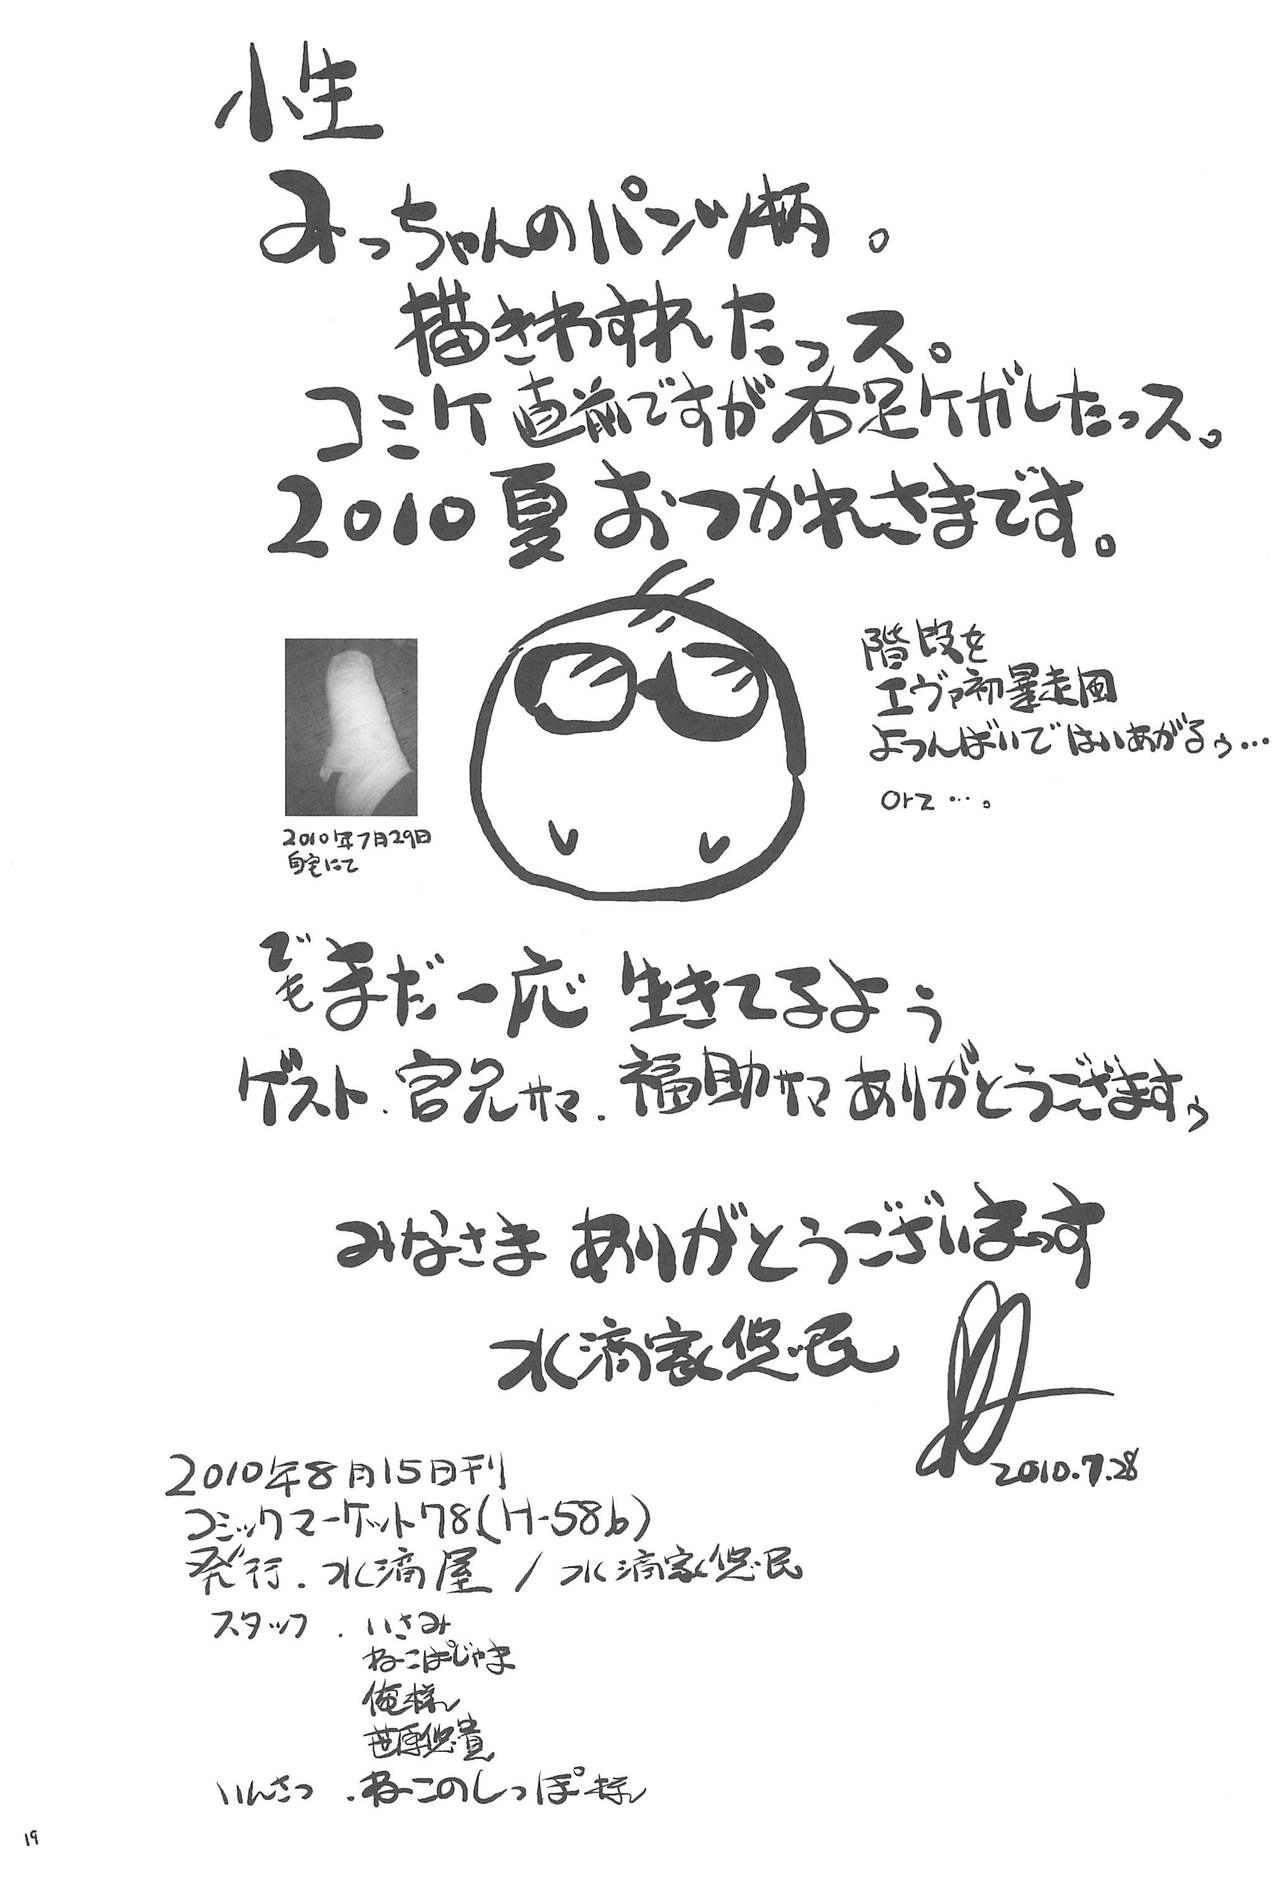 小生
みっちゃんのパンツ柄。
描きわすれたっス。
コミケ直前ですが右足ケガしたっス。
2010夏おつかれさまです。
階段を
エヴァ初暴走風
よつんばいではいあがるぅ…
orz…。
2010年7月29日
自宅にて
でもまだ一応 生きてるよぅ
ゲスト.宮兄サマ.福助サマありがとうござますぅ
みなさまありがとうございまっす
水滴家悠民
2010.7.28
2010年8月15日刊
コミックマーケット78(H-58b)
発行.水滴屋/水滴家悠民
スタッフ.いさみ
ねこぱじゃま
俺様
世原悠貴
いんさつ.ねこのしっぽ様
19